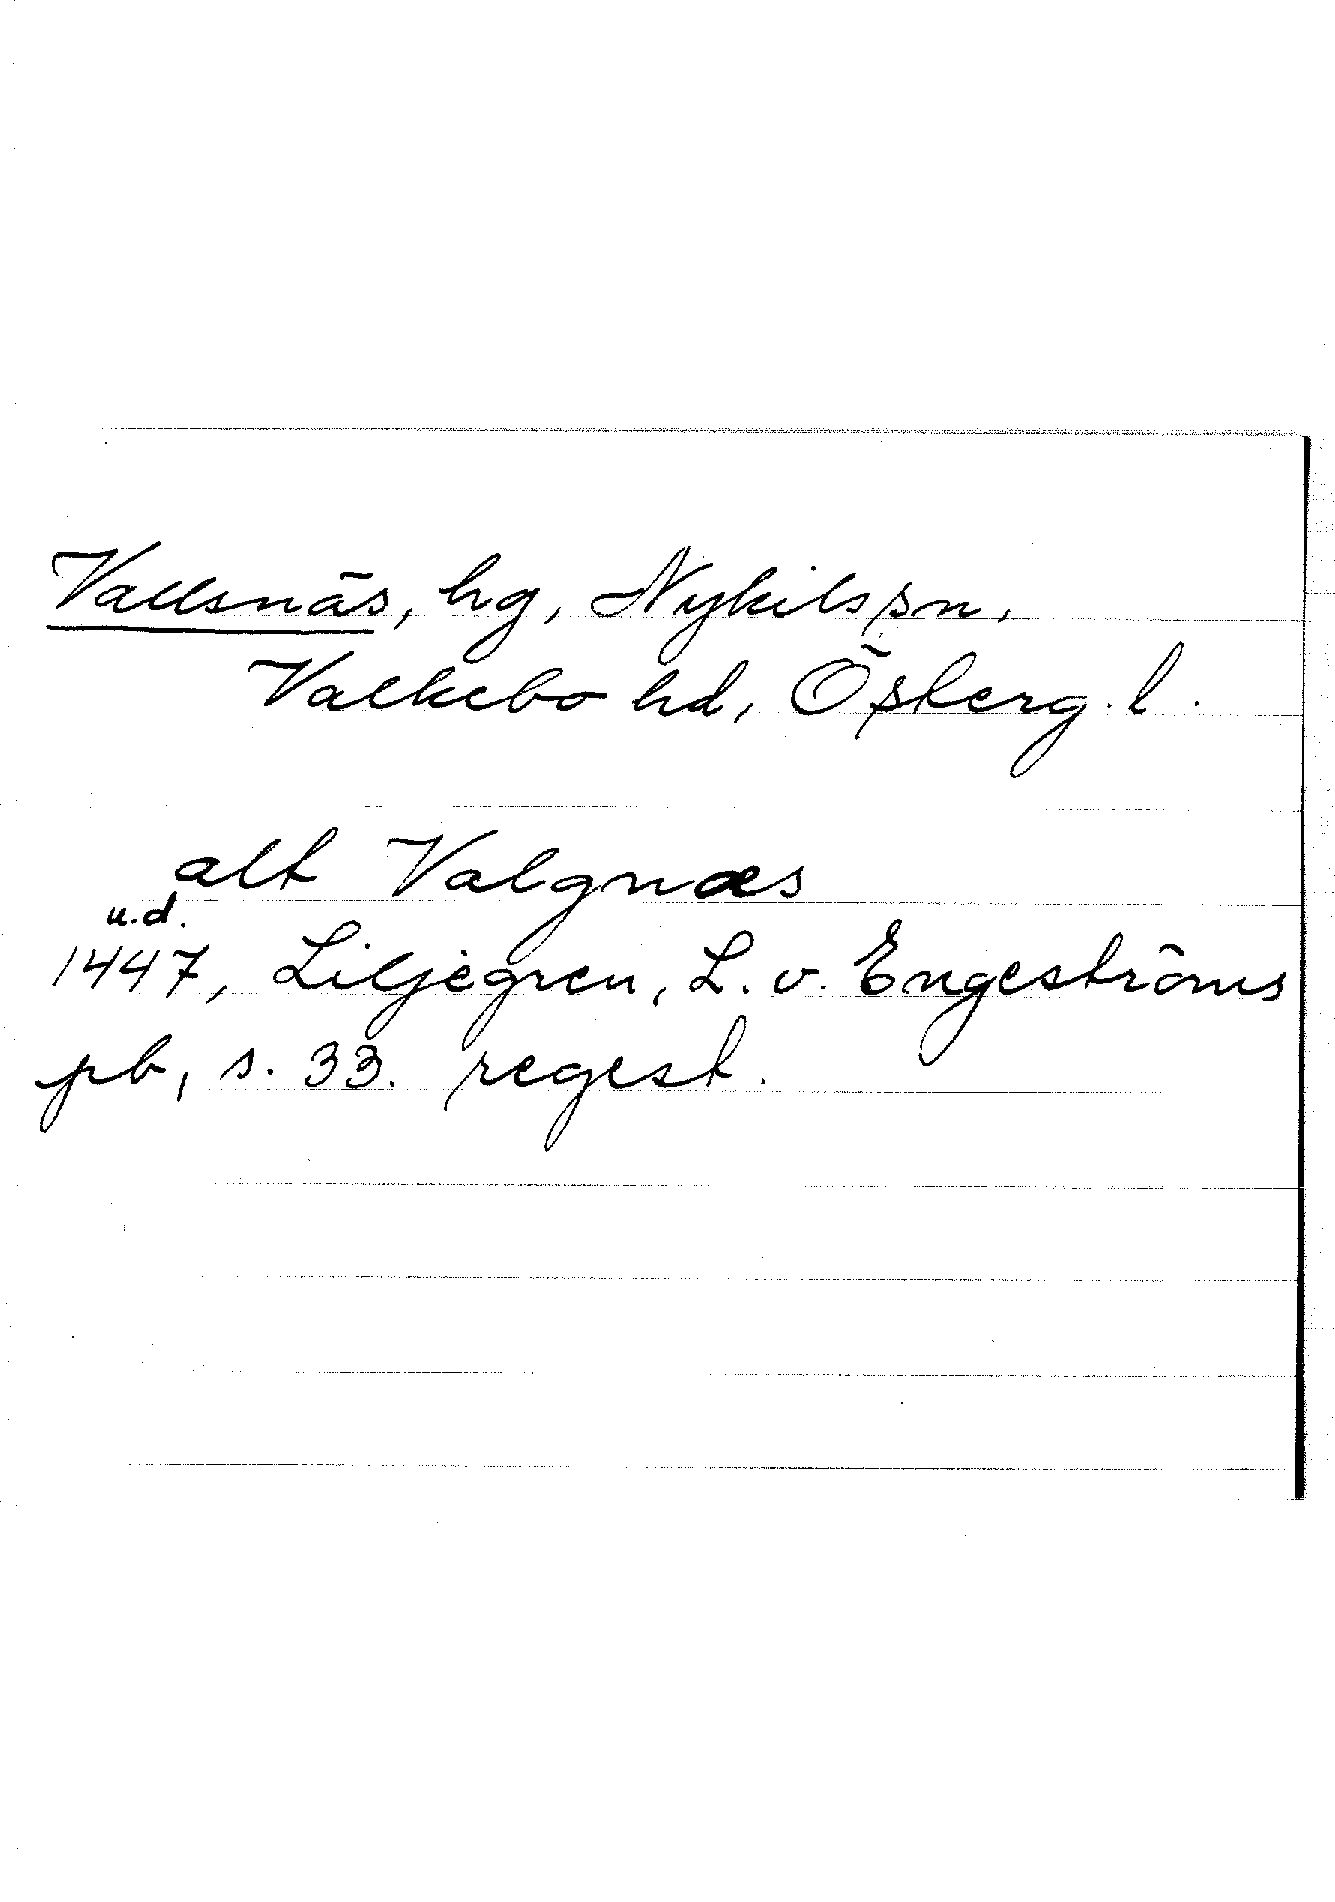 Vallsnäs, hg, Nykils sn,
Valkebo hd, Östergl.
alt Valgnæs
u.d.
1447, Liljegren, L. v. Engeströms
pb, s. 33. regest.